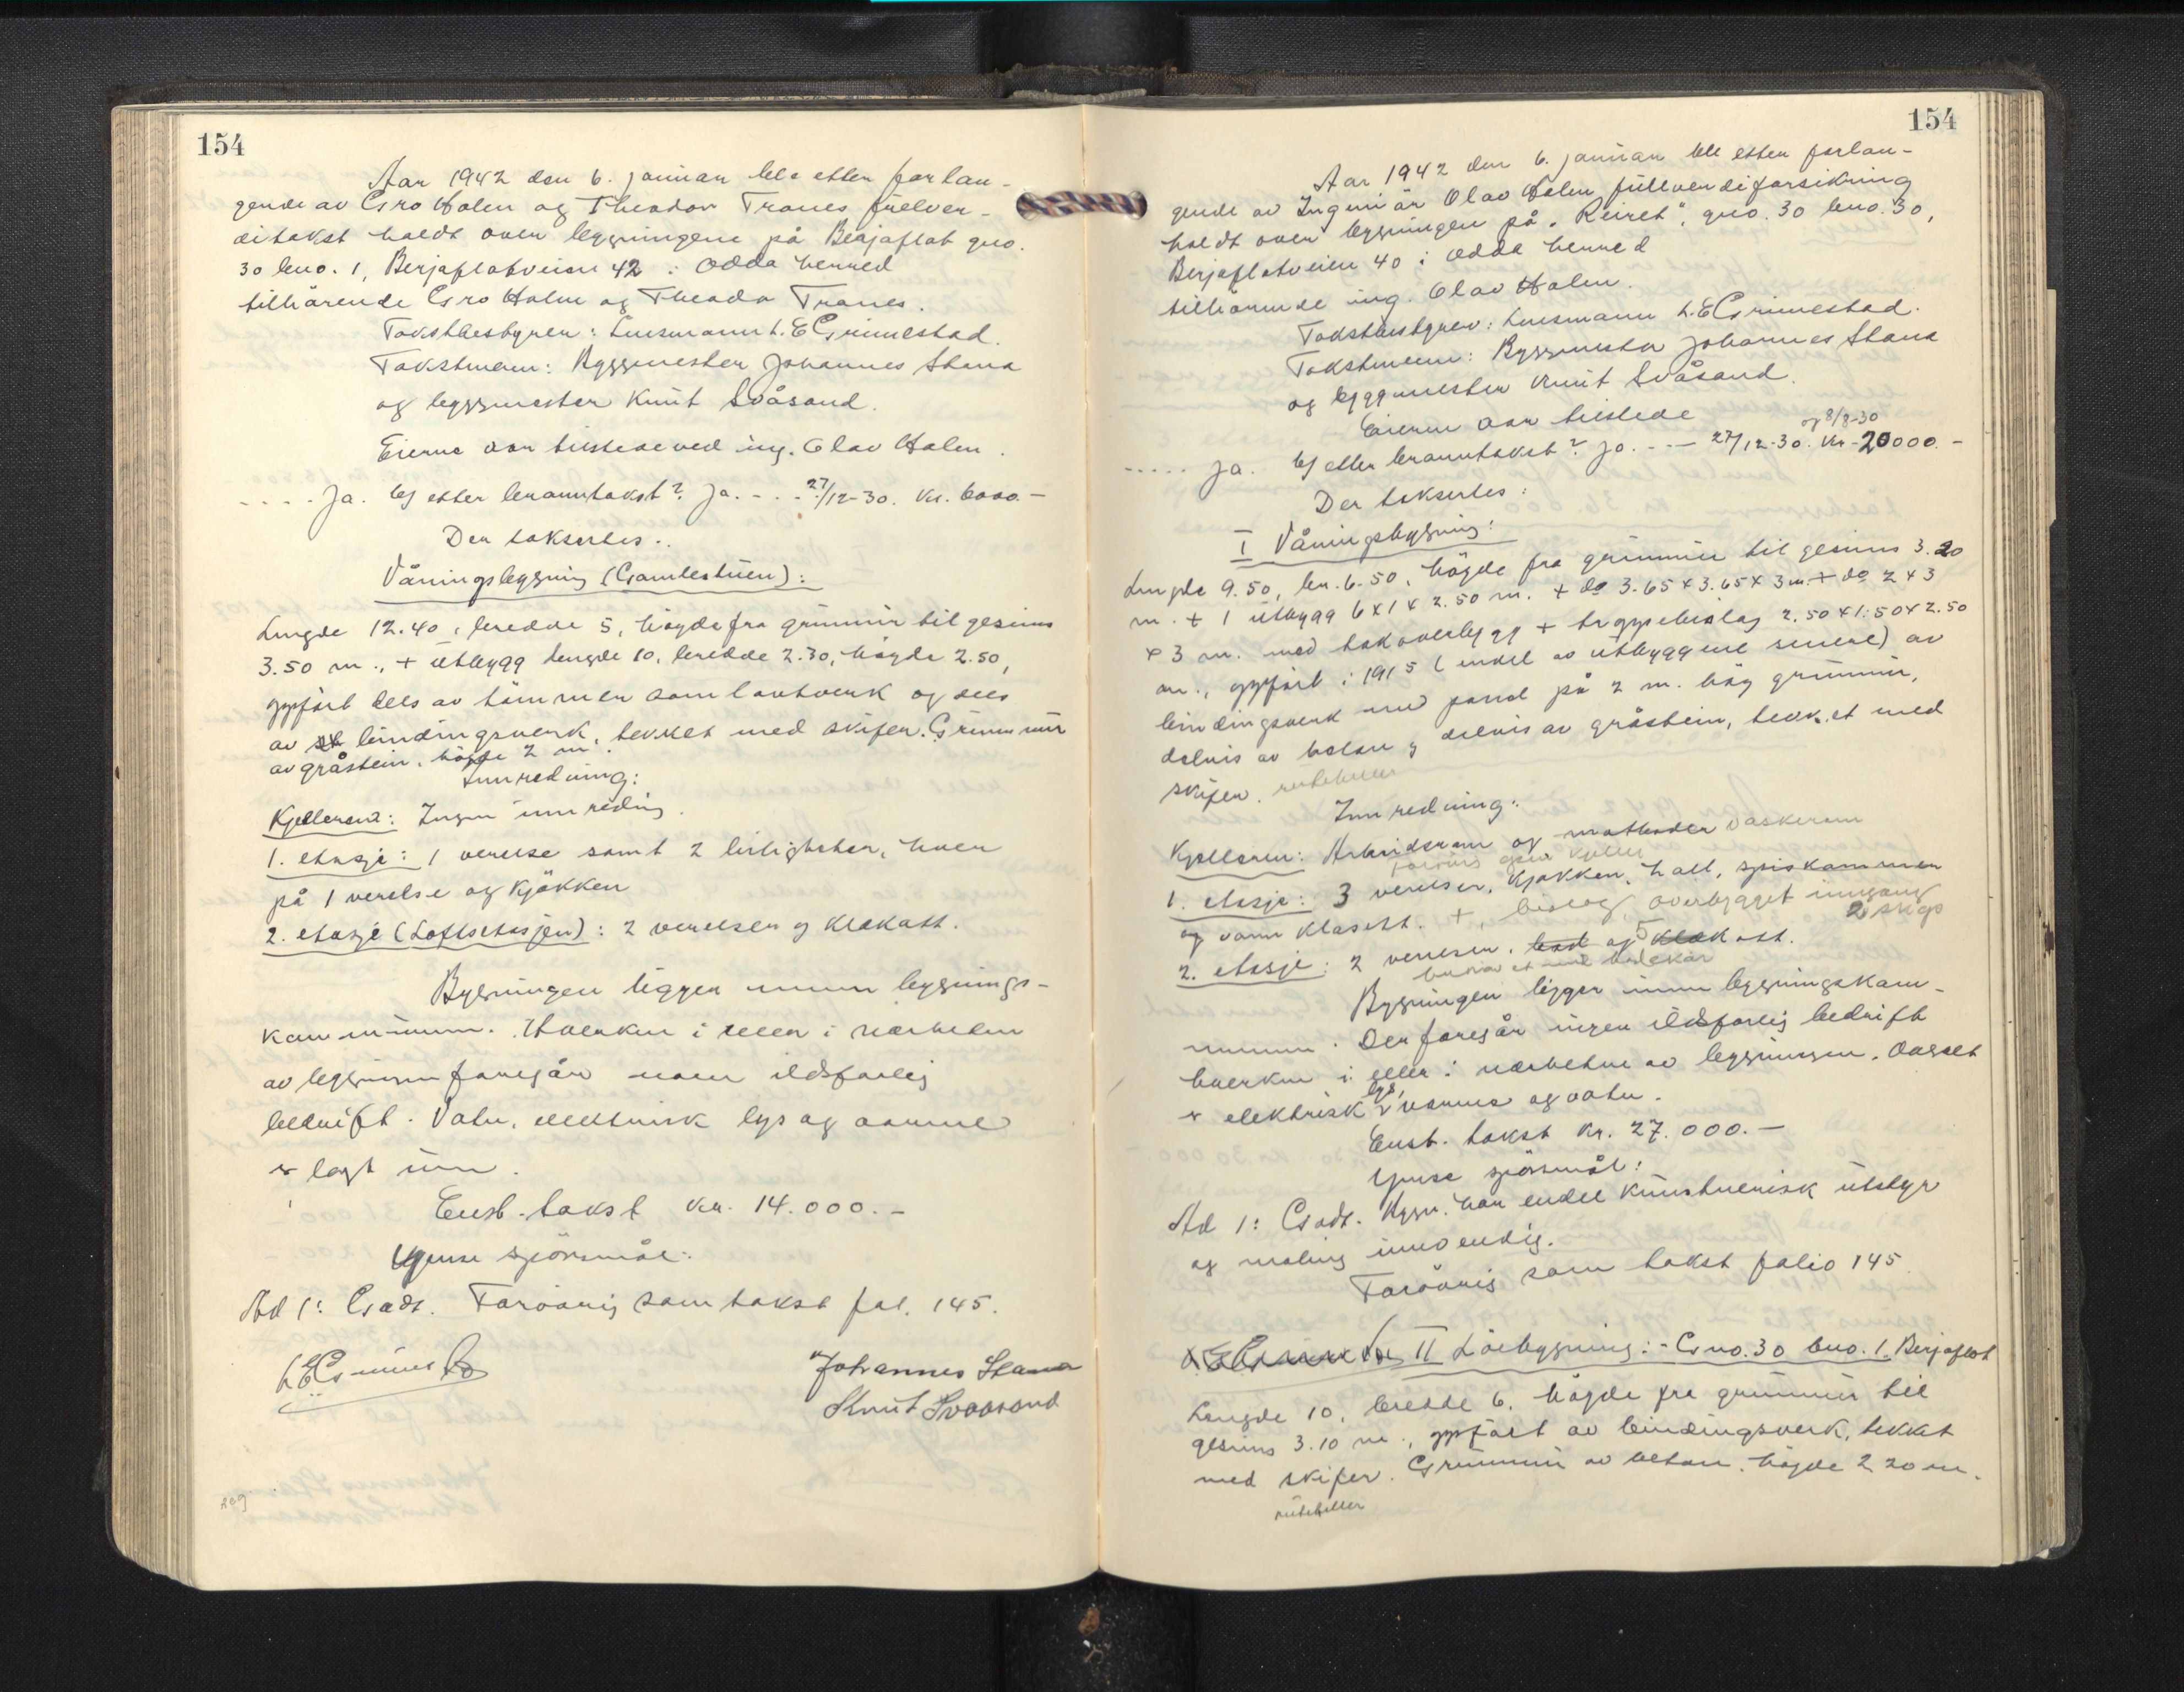 154
Aar 1942 den 6. januar ble etter forlan-
gende av Gro Holen og Theodor Tranes fullver-
ditakst holdt over bygningene på Berjaflot gno.
30 bno. 1, Berjaflotveien 42 i Odda herred
tilhørende Gro Holen og Theodor Tranes.
Takstbestyrer: Lensmann L. E Grimestad.
Takstmenn: Byggmester Johannes Stana
og byggmester Knut Svåsand.
Eierne var tilstede ved ing. Olav Holen.
. . . . Ja. Ej etter branntakst? Ja. - . - 27/12-30. Kr. 6000.-
Der takseres:
Våningsbygning (Gamlestuen):
Lengde 12.40, bredde 5, høyde fra grunnmur til gesims
3.50 m., + utbygg lengde 10, bredde 2.30, høyde 2.50,
oppført dels av tømmer som laftverk og dels
av bindingsverk, tekket med skifer. Grunnmur
av gråstein, høyde 2 m.
Innredning:
Kjelleren: Ingen innreding.
1. etasje: 1 verelse samt 2 leiligheter, hver
på 1 verelse og kjøkken
2. etasje (Loftsetasjen): 2 verelser og klokott.
Bygningen ligger innen bygnings-
kommunen. Hverken i eller i nærheten
av bygningen foregår noen ildsfarlig
bedrift. Vatn, elektrisk lys og varme
er lagt inn.
Enst. takst kr. 14.000.-
Ymse spörsmål:
Ad 1: Godt. Forövrig som takst fol. 145.
L E Grimestad
Johannes Stana
Knut Svaasand
154
Aar 1942 den 6. januar ble etter forlan-
gende av Ingeniör Olav Holen fullverdiforsikring
holdt over bygningen på "Reiret", gno. 30 bno. 30,
Berjaflotveien 40 i Odda herred
tilhørende ing. Olav Holen.
Takstbestyrer: Lensmann L. E Grimestad.
Takstmenn: Byggmester Johannes Stana
og byggmester Knut Svåsand.
Eieren var tilstede
og 8/8-30
. . . . . Ja. Ej etter branntakst? Jo. - . - 27/12-30. Kr - 20000.-
Der takseres:
I Våningsbygning:
Lengde 9.50, br. 6.50, høyde fra grunnmur til gesims 3.20
m. + 1 utbygg 6 x 1 x 2.50 m. + do 3.65 x 3.65 x 3 m. + do 2 x 3
x 3 m. med takoverbygg + trappebislag 2.50 x 1.50 x 2.50
m., oppført i 1915 (endel av utbyggene senere) av
bindingsverk med panel på 2 m. høy grunnmur,
delvis av betong delvis av gråstein, tekket med
skifer. ruteheller
Innredning:
Kjelleren: Arbeidsrom og matboder vaskerum
1. etasje: 3 verelser, kjøkken, hall, spiskammer
og vann klosett. + bislag, overbygget inngang
2 skap
2. etasje: 2 verelser, bad og 5 klokott.
Bygningen ligger innen bygningskom-
munen. Der foregår ingen ildsfarlig bedrift
hverken i eller i nærheten av bygningen. Innlagt
er elektrisk lys, varme og vatn.
Enst. takst kr. 27.000.-
Ymse spörsmål:
Ad 1: Godt. Bygn. har endel kunstnerisk utstyr
og maling innvendig.
Forövrig som takst folio 145
II Löebygning: - Gno. 30 bno. 1. Berjaflot
Lengde 10, bredde 6, høyde fra grunnmur til
gesims 3.10 m., oppført av bindingsverk, tekket
med skifer. Grunnmur av betong, høyde 2 20 m.
ruteheller